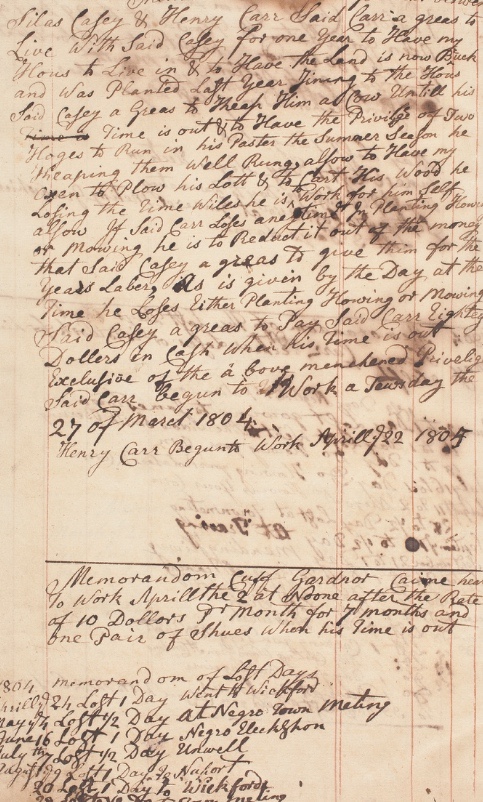 Silas Casey & Henry Carr Said Carr a greas to
Live With Said Casey for one Year to Have my
Hous to Live in & to Have the Land is now Buck
and Was Planted Last Year Jining to the Hous
Said Casey a Greas to Keap Him a Cow Untill his
Time is out & to Have the Privilig of Two
Hoges to Run in his Paster the Summer Season he
Keaping them Well Rung allow to Have my
Oxen to Plow his Lott & to Cart His Wood he
Losing the Time Wiles he is Work for him Self
allow If Said Carr Loses ane Time in Planting Howing
or Mowing he is to Reduct it out of the money
that Said Casey a greas to give them for the
Years Laberg As is given by the Day at the
Time he Loses Either Planting Howing or Mowing
Said Casey a greas to Pay Said Carr Eighty
Dollers in Cash When his Time is out
Exclusive of the a bove menchened Privelig
Said Carr begun to Work a Teusday the
27 of March 1804
Henry Carr Begunto Work Aprill 22 1805
Memorandom Cuff Gardnor Caime hear
To Work Aprill the 2 at Noone after the Rate
of 10 Dollors Pr Month for 7 months and
one Pair of Shues When his Time is out
memorandom of Lost Days
1804
24 Lost 1 Day Went to Wickford
May 14 Lost 1/2 Day at Negro Town Meting
June 16 Lost 1 Day Negro Elecshon
July 7 Lost 1/2 Day Unwell
Lost 1 Day to Nuport
20 Lost 1 Day to Wickford